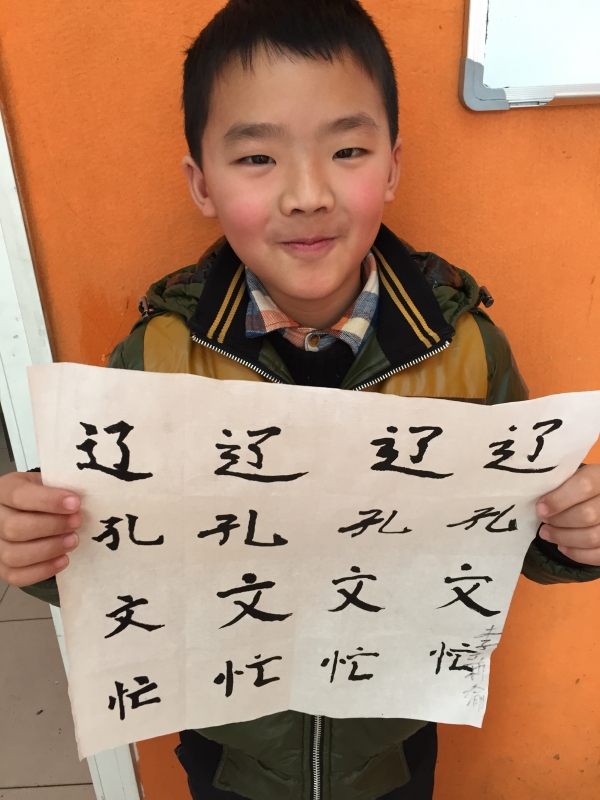 辽 辽 辽 辽
孔 孔 孔 孔
文 文 文 文
忙 忙 忙 忙